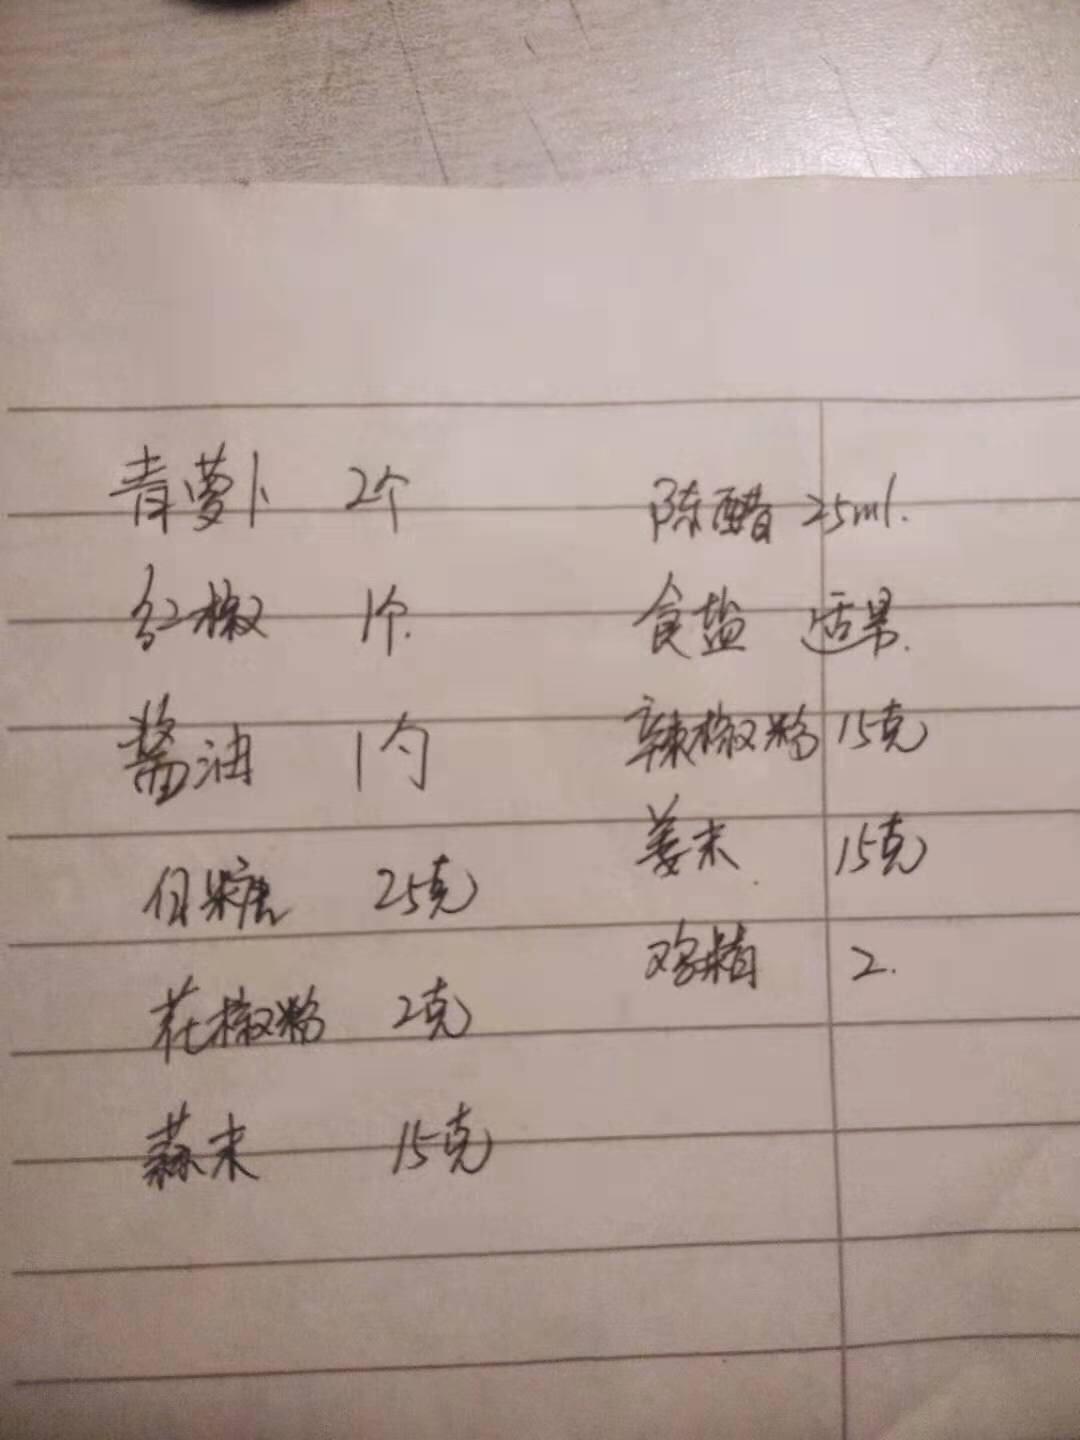 青萝卜 2个
红椒 1个.
酱油 1勺
白糖 25克
花椒粉 2克
蒜末 15克
陈醋 25ml.
食盐 适量.
辣椒粉 15克
姜末 15克
鸡精 2.